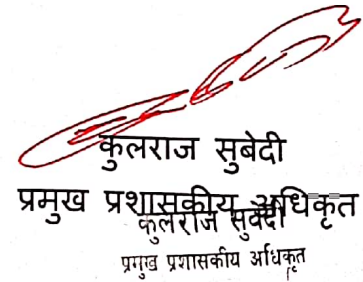 कुलराज सुवेदी
प्रमुख प्रशासकीय अधिकृत
कुलराज सुवेदी
प्रमुख प्रशासकीय अधिकृत